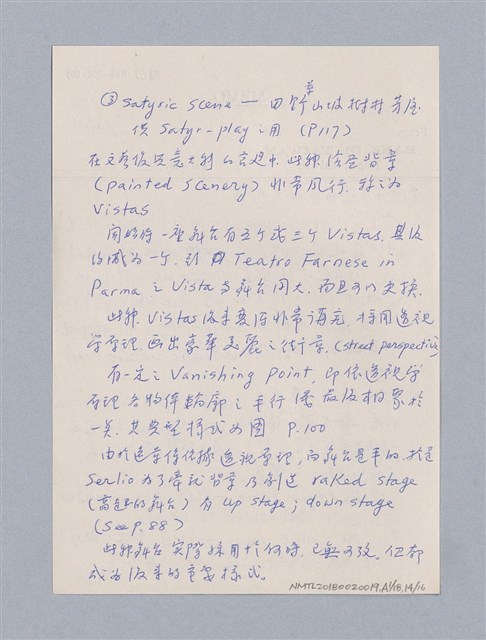 ③ Satyric Scene — 田野草山坡樹林茅屋
供 Satyr-play 之用 (P.117)
在文藝復興意大利舞台建中, 此種繪畫背景
(painted scenery) 非常風行. 稱之為
Vistas
開始時一座舞台有五个或三个 Vistas, 其後
約減為一个, 到 Teatro Farnese in
Parma 之 Vista 與舞台同大, 而且可以更換.
此種 Vistas 後來變得非常講究, 採用透視
學原理, 画出豪華美麗之街景. (street perspective)
有一定之 Vanishing Point, 即依透視學
原理各物体輪廓之平行綫最後相聚於
一点. 其典型樣式如圖 P.100
由於它係依據透視學原理, 而舞台是平的. 於是
Serlio 為了牽就背景乃創造 raked stage
(高起的舞台) 有 up stage; down stage
(See P.88)
此種舞台實際採用於何時, 已無可考. 但都
成為後來的重要樣式.
NMTL20180020019, A/18, 14/16